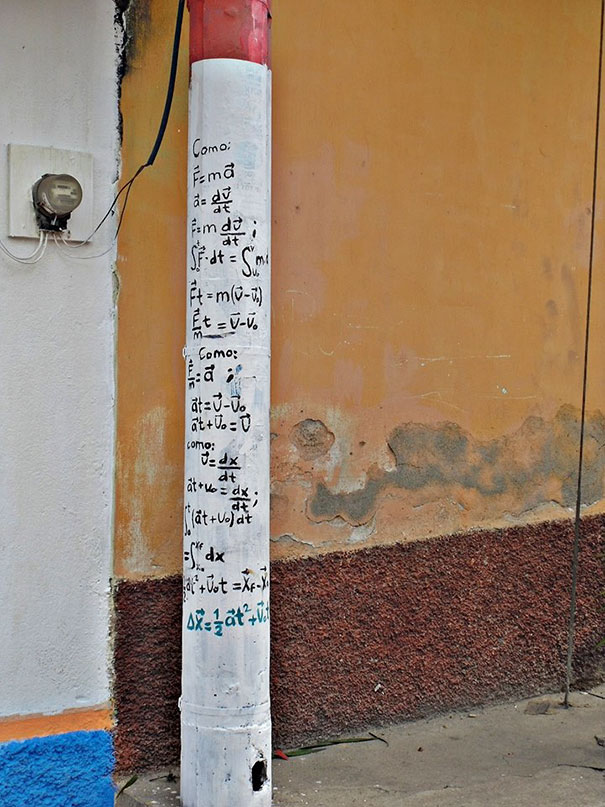 Como:
F⃗=ma⃗
a⃗=dv⃗/dt
F⃗=m dv⃗/dt ;
∫₀ᵗF⃗·dt = ∫ᵥ₀ᵛ m
F⃗t = m(v⃗-v⃗₀)
F⃗/m t = v⃗-v⃗₀
Como:
F⃗/m=a⃗ ;
a⃗t=v⃗-v⃗₀
a⃗t+v⃗₀=v⃗
como:
v⃗=dx/dt
a⃗t+v₀=dx/dt ;
∫₀ᵗ(a⃗t+v₀)dt
=∫dx
½a⃗t²+v⃗₀t=x⃗F-x⃗₀
Δx⃗=½a⃗t²+v⃗₀t